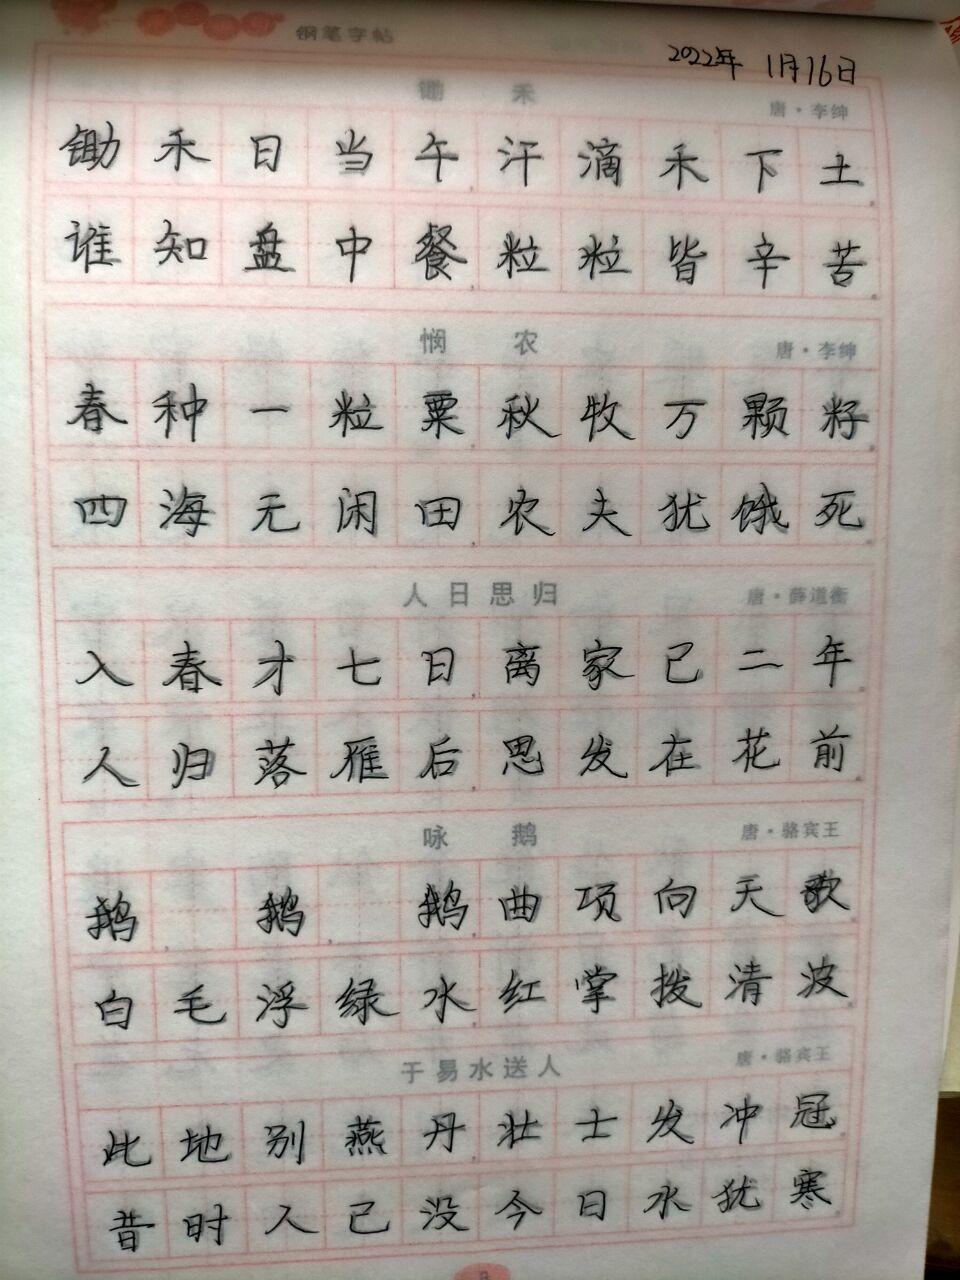 钢笔字帖
2022年 1月16日
锄禾
唐·李绅
锄禾日当午汗滴禾下土
谁知盘中餐粒粒皆辛苦
悯农
唐·李绅
春种一粒粟秋牧万颗籽
四海无闲田农夫犹饿死
人日思归
唐·薛道衡
入春才七日离家已二年
人归落雁后思发在花前
咏鹅
唐·骆宾王
鹅 鹅 鹅曲项向天歌
白毛浮绿水红掌拨清波
于易水送人
唐·骆宾王
此地别燕丹壮士发冲冠
昔时人已没今日水犹寒